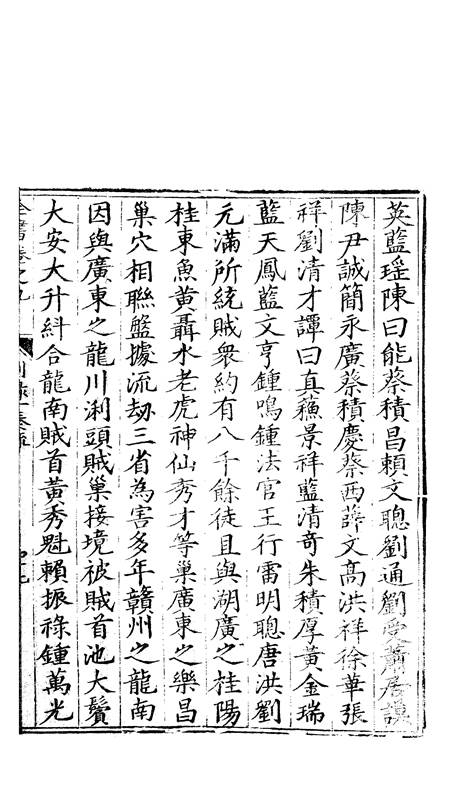 英藍瑶陳曰能蔡積昌賴文聰劉通劉受蕭居謨
陳尹誠簡永廣蔡積慶蔡西薛文高洪祥徐華張
祥劉清才譚曰真蘓景祥藍清奇朱積厚黃金瑞
藍天鳳藍文亨鍾鳴鍾法官王行雷明聰唐洪劉
元滿所統賊衆約有八千餘徒且與湖廣之桂陽
桂東魚黃聶水老虎神仙秀才等巢廣東之樂昌
巢穴相聯盤據流劫三省為害多年贛州之龍南
因與廣東之龍川浰頭賊巢接境被賊首池大鬢
大安大升糾合龍南賊首黃秀魁賴振祿鍾萬光
全書卷之九